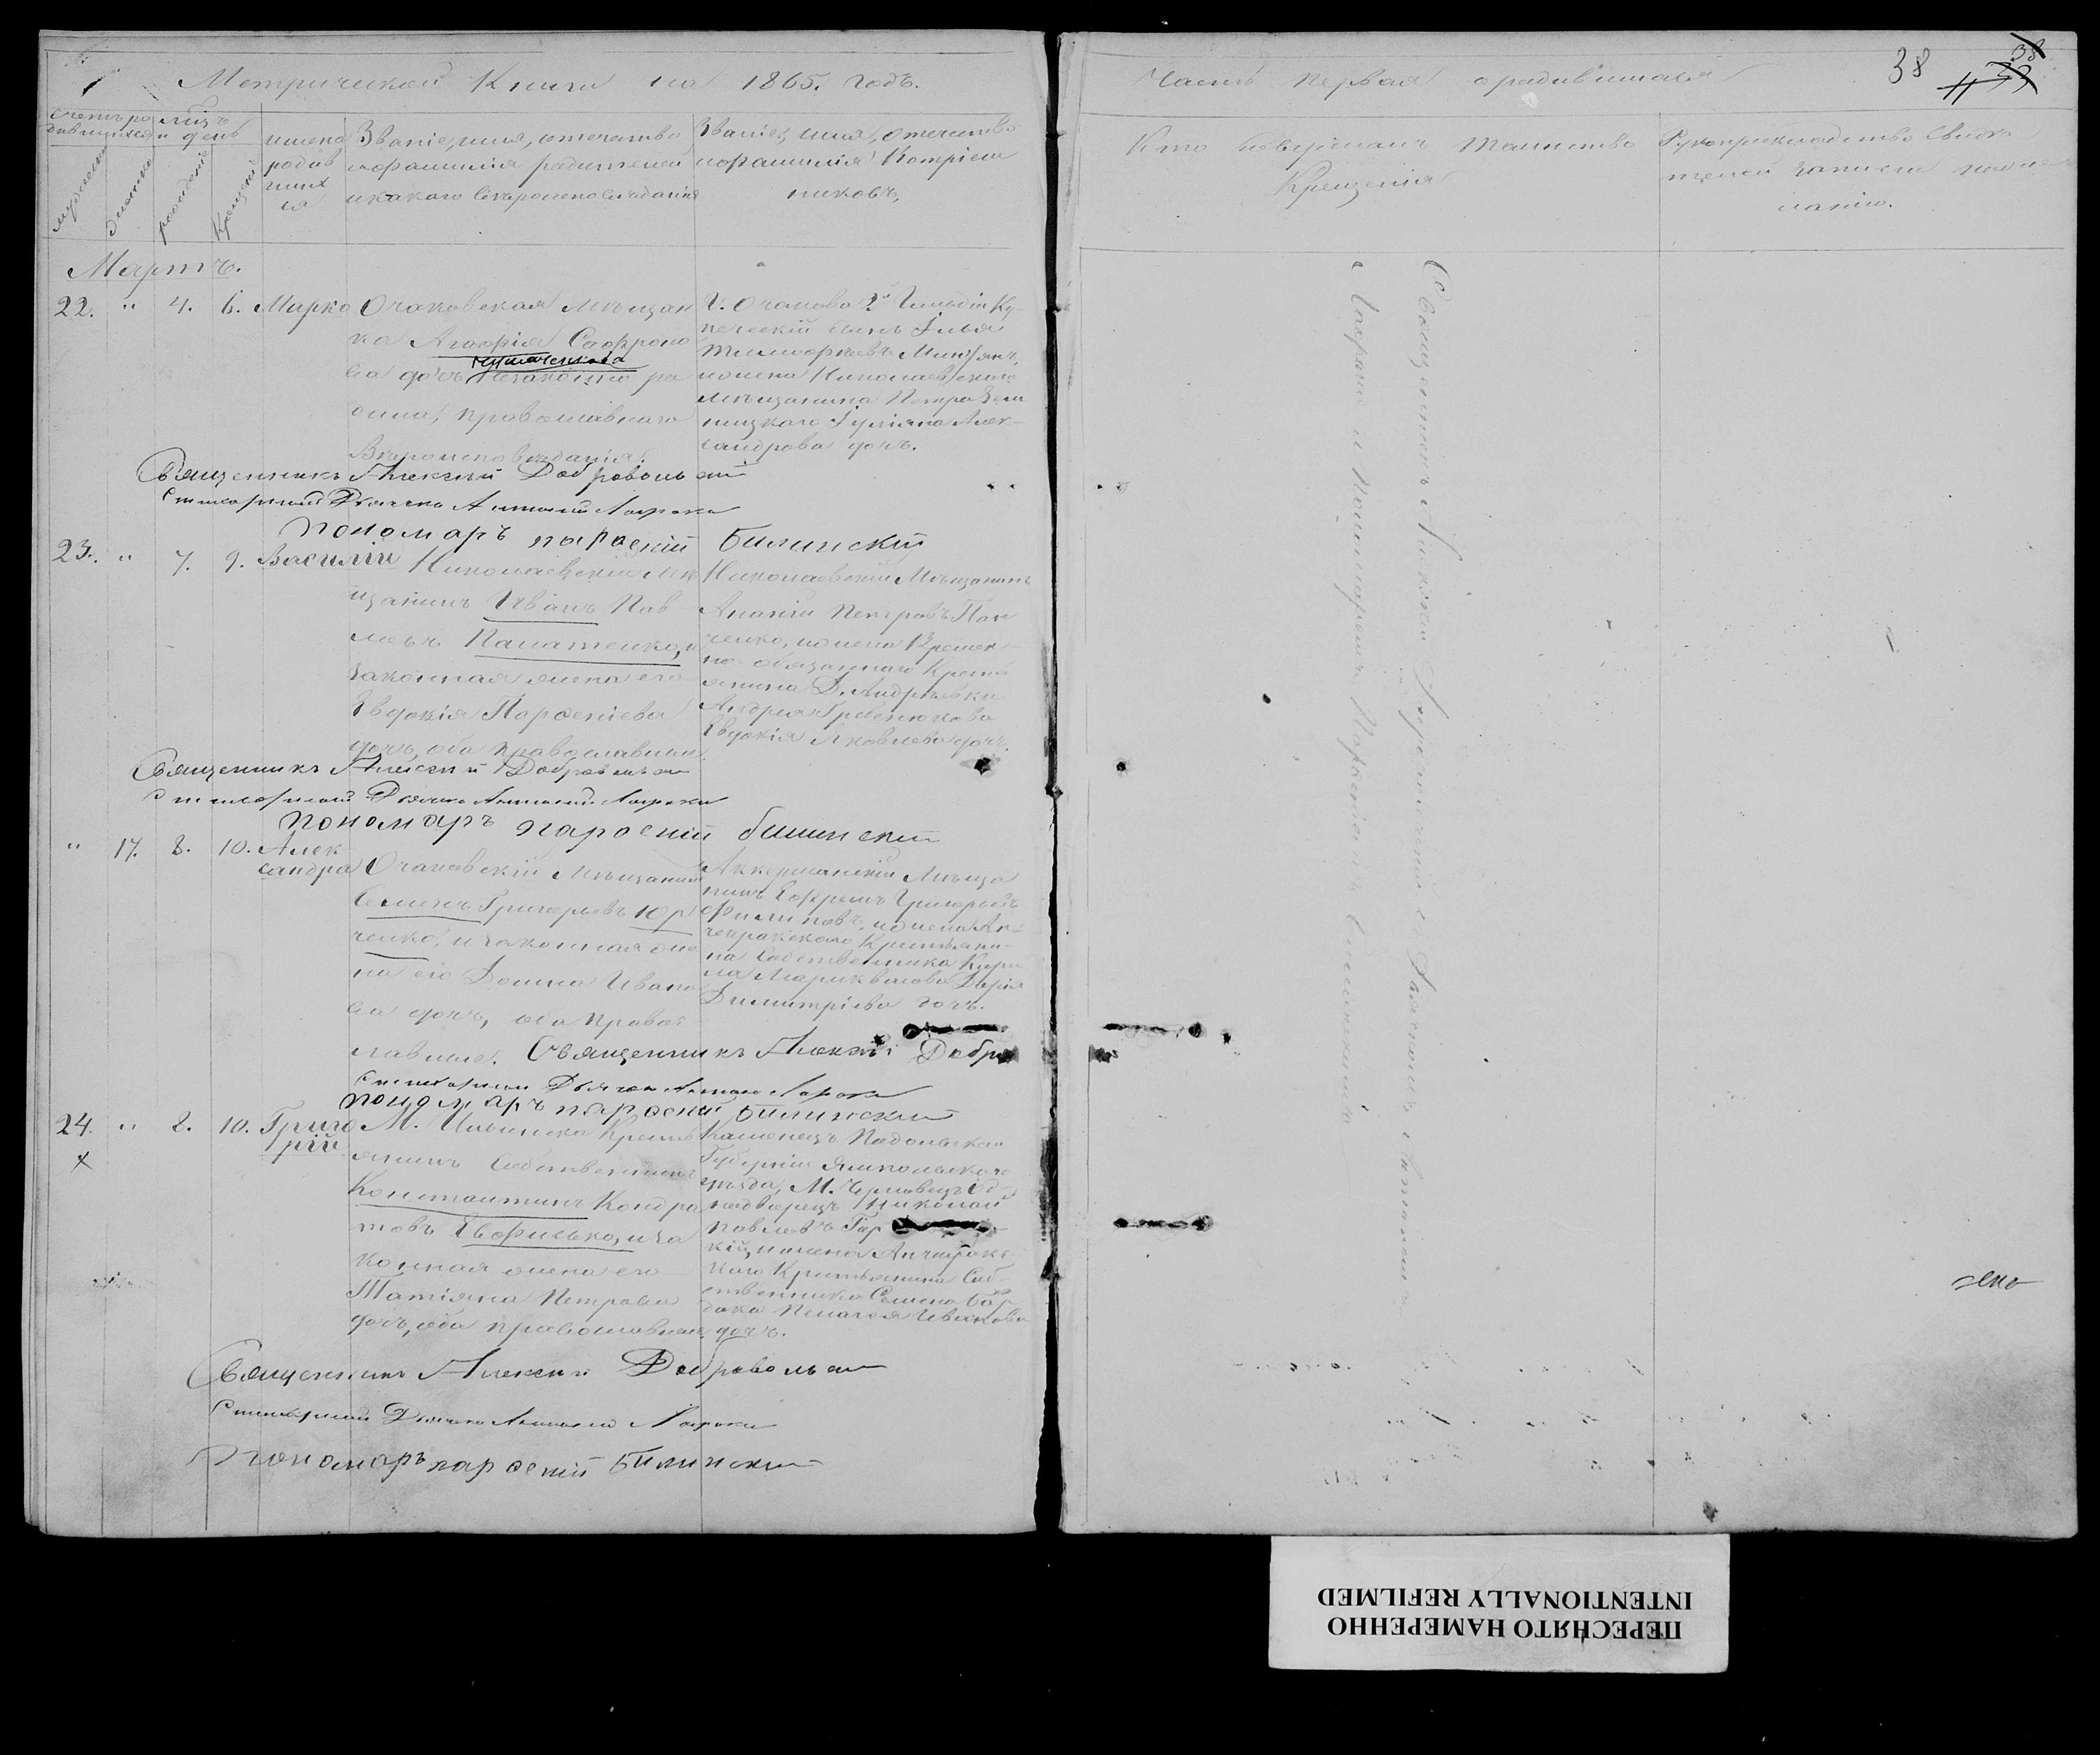 Метрической Книги на 1865. годъ.
Часть первая о родившихся
38
38
Счетъ ро
дившихся
мѣц.
и день
мужеска
женска
рожденія
крещенія
имена
родив
шихъ
ся
Званіе, имя, отечество
и фамилія родителей
и какого вѣроисповѣданія
Званіе, имя, отечество
и фамилія Воспріем
никовъ,
Кто совершалъ таинство
Крещенія
Рукоприкладство свидѣ
телей записи по же
ланію.
Мартъ.
22. " 4. 6. Марко
Очаковская мѣщан
ка Агафія Сафроно
ва дочь незаконно ро
дила, православнаго
Вѣроисповѣданія.
Г. Очакова 2й Гильдіи Ку
печескій сынъ Илья
Тимофеевъ
и жена Николаевскаго
мѣщанина Петра
Іуліана Алек
сандрова дочь.
Священникъ Алексій Добровольскій
Стихарный Дьячекъ Антоній
Пономаръ Парфеній Билинскій
23. " 7. 9. Василій
Николаевскій мѣ
щанинъ Иванъ Пав
ловъ Панатенко, и
законная жена его
Евдокія Парфеніева
дочь, оба православные
Николаевскій Мѣщанинъ
Ананій Петровъ Пан
ченко, и жена Времен
но-обязаннаго Кресть
янина Д. Андреевки
Андрея Гребенюкова
Евдокія Яковлева дочь.
Священникъ Алексій Добровольскій
Стихарный Дьячекъ Антоній
Пономаръ Парфеній Билинскій
" 17. 8. 10. Алек
сандра
Очаковскій мѣщанинъ
Семенъ Григорьевъ Юр
ченко, и законная же
на его Домна Ивано
ва дочь, оба правос
лавные.
Аккерманскій Мѣща
нинъ Ефремъ Григорьевъ
Филиповъ, и жена Ан
чекракскаго Крестьяни
на Собственника Кири
ла Дарія
Димитріева дочь.
Священникъ Алексій Добро
Стихарный Дьячекъ Антоній
Пономаръ Парфеній Билинскій
24. " 8. 10. Григо
рій
М. Ильинка Кресть
янинъ Собственникъ
Константинъ Кондра
товъ Евфилько, и за
конная жена его
Татіяна Петрова
дочь, оба православные
Каменецъ Подольской
Губерніи Ямпольскаго
уѣзда, М. Черновецъ Од
нодворецъ Николай
Павловъ Гар
кій, и жена Анчекрак
скаго Крестьянина Соб
ственника Семена Бар
дака Пелагея Иванова
дочь.
Священникъ Алексій Добровольскій
Стихарный Дьячекъ Антоній
Пономаръ Парфеній Билинскій
Священникъ Алексій Добровольскій съ Дьячкомъ Антоніемъ
и Пономаремъ Парфеніемъ Билинскимъ
ПЕРЕСНЯТО НАМЕРЕННО
INTENTIONALLY REFILMED